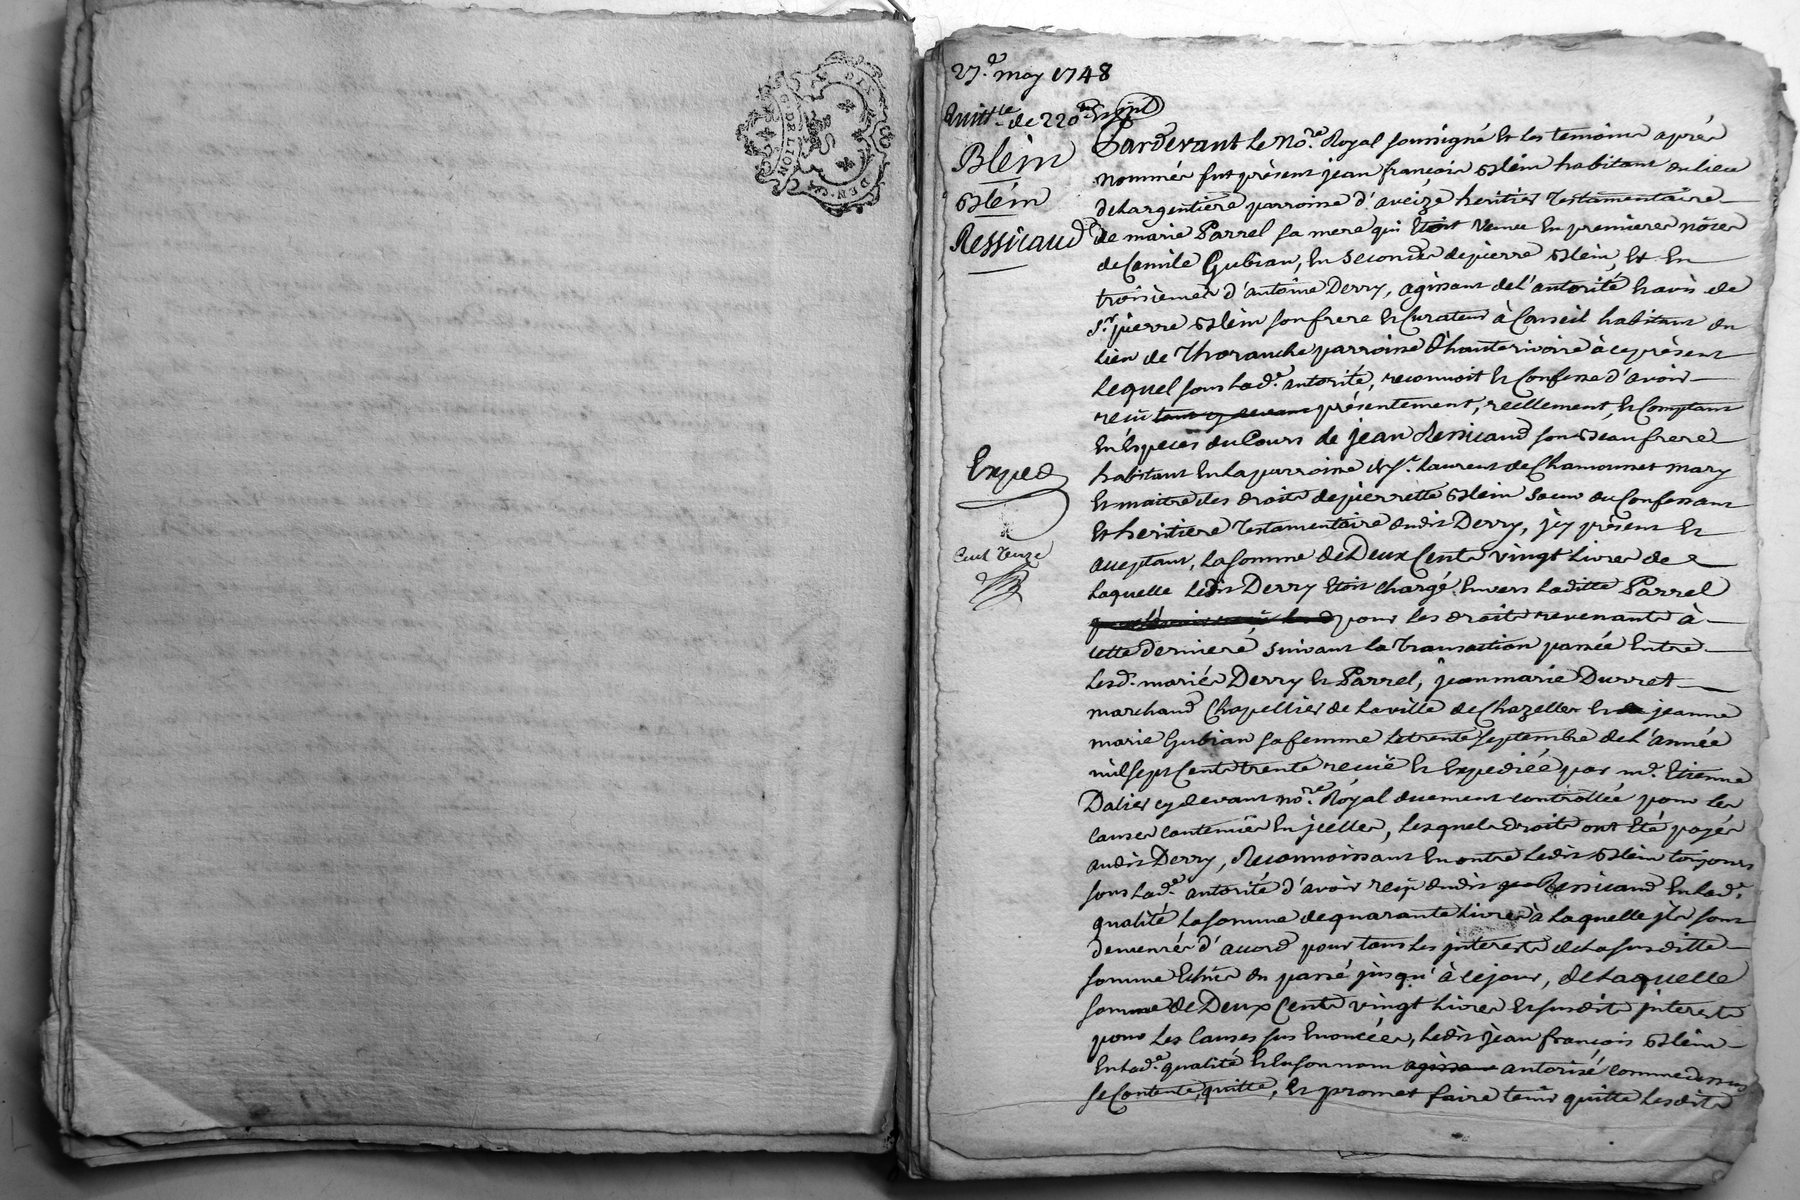 GÉN. DE LION
DIX DEN.
27.e may 1748
Quitt.ce de 220
Blein
Blein
Ressicaud
Exped
Cent Treize
Pardevant Le No.re Royal soussigné Et les temoins aprés
nommés fut présent jean françois Blein habitant du lieu
de Largentiere parroisse d'aveize heritier Testamentaire
de marie Parrel sa mere qui Etoit veuve En premieres nôces
de Camile Gubian, En Secondes de pierre Blein, Et En
troisièmes d'antoine Derry, agissant de L'autorité Et avis de
S.r pierre Blein son frere Et Curateur à Conseil habitant du
lieu de Thoranche parroisse d'hauterivoire à ce présent
Lequel sous Lad.e autorité, reconnoit Et Confesse d'avoir
reçû tout cy devant présentement, reellement, Et Comptant
En Especes du Cours de jean Ressicaud son Beaufrere
habitant En La parroisse de S.t Laurent de Chamousset mary
Et maitre des droits de pierrette Blein Soeur du Confessant
Et heritiere Testamentaire dudit Derry, jcy présent Et
acceptant, La somme de Deux Cents vingt Livres de
Laquelle Ledit Derry Etoit chargé Envers Laditte Parrel
pour les droits revenants à
cette derniere suivant la Transaction passée Entre
Lesd. mariés Derry Et Parrel, jean marie Durret
marchand Chapellier de La ville de Chazelles Et jeanne
marie Gubian sa femme Le trente septembre de L'année
mil sept Cents trente reçuë Et Expediée par m.e Etienne
Dalier cy devant no.re Royal duement controllée pour les
causes contenuës En jcelles, Lesquels droits ont Eté payés
audit Derry, Reconnoissant En outre Ledit Blein toujours
sous Lad.e autorité d'avoir reçû dudit Ressicaud En Lad.e
qualité La somme de quarante Livres à Laquelle jls sont
demeurés d'accord pour tous Les jnterests de La susditte
somme Echûs du passé jusqu'à ce jour, de Laquelle
somme de Deux Cents vingt Livres Et susdits jnterests
pour Les Causes sus Enoncées, Ledit jean françois Blein
En Lad.e qualité Et En son nom agissant autorisé comme dessus
se Contente, quitte, Et promet faire tenir quitte Lesdits